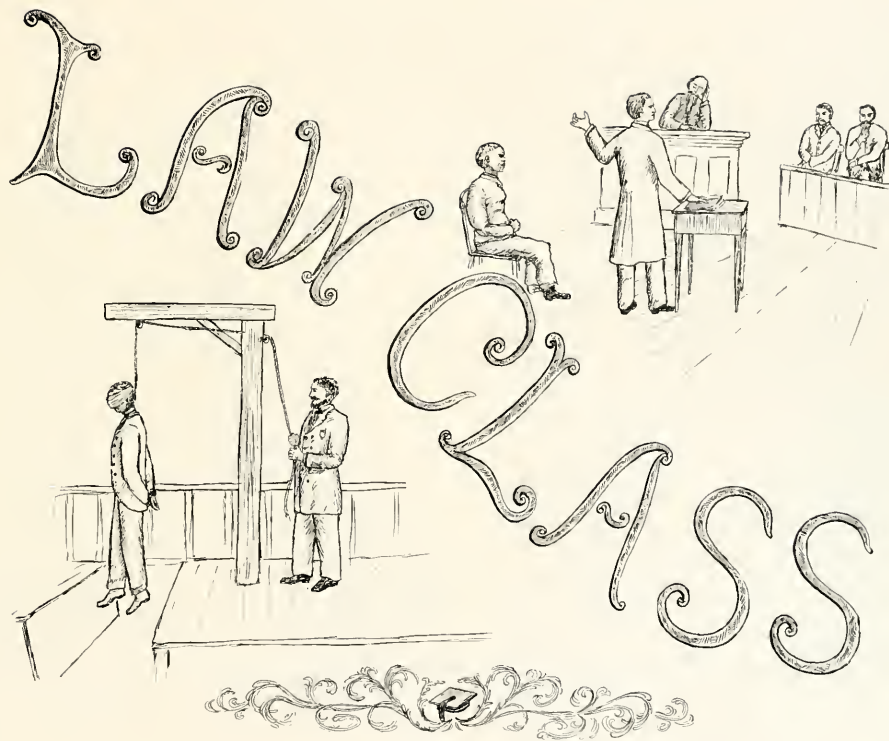 LAW
CLASS